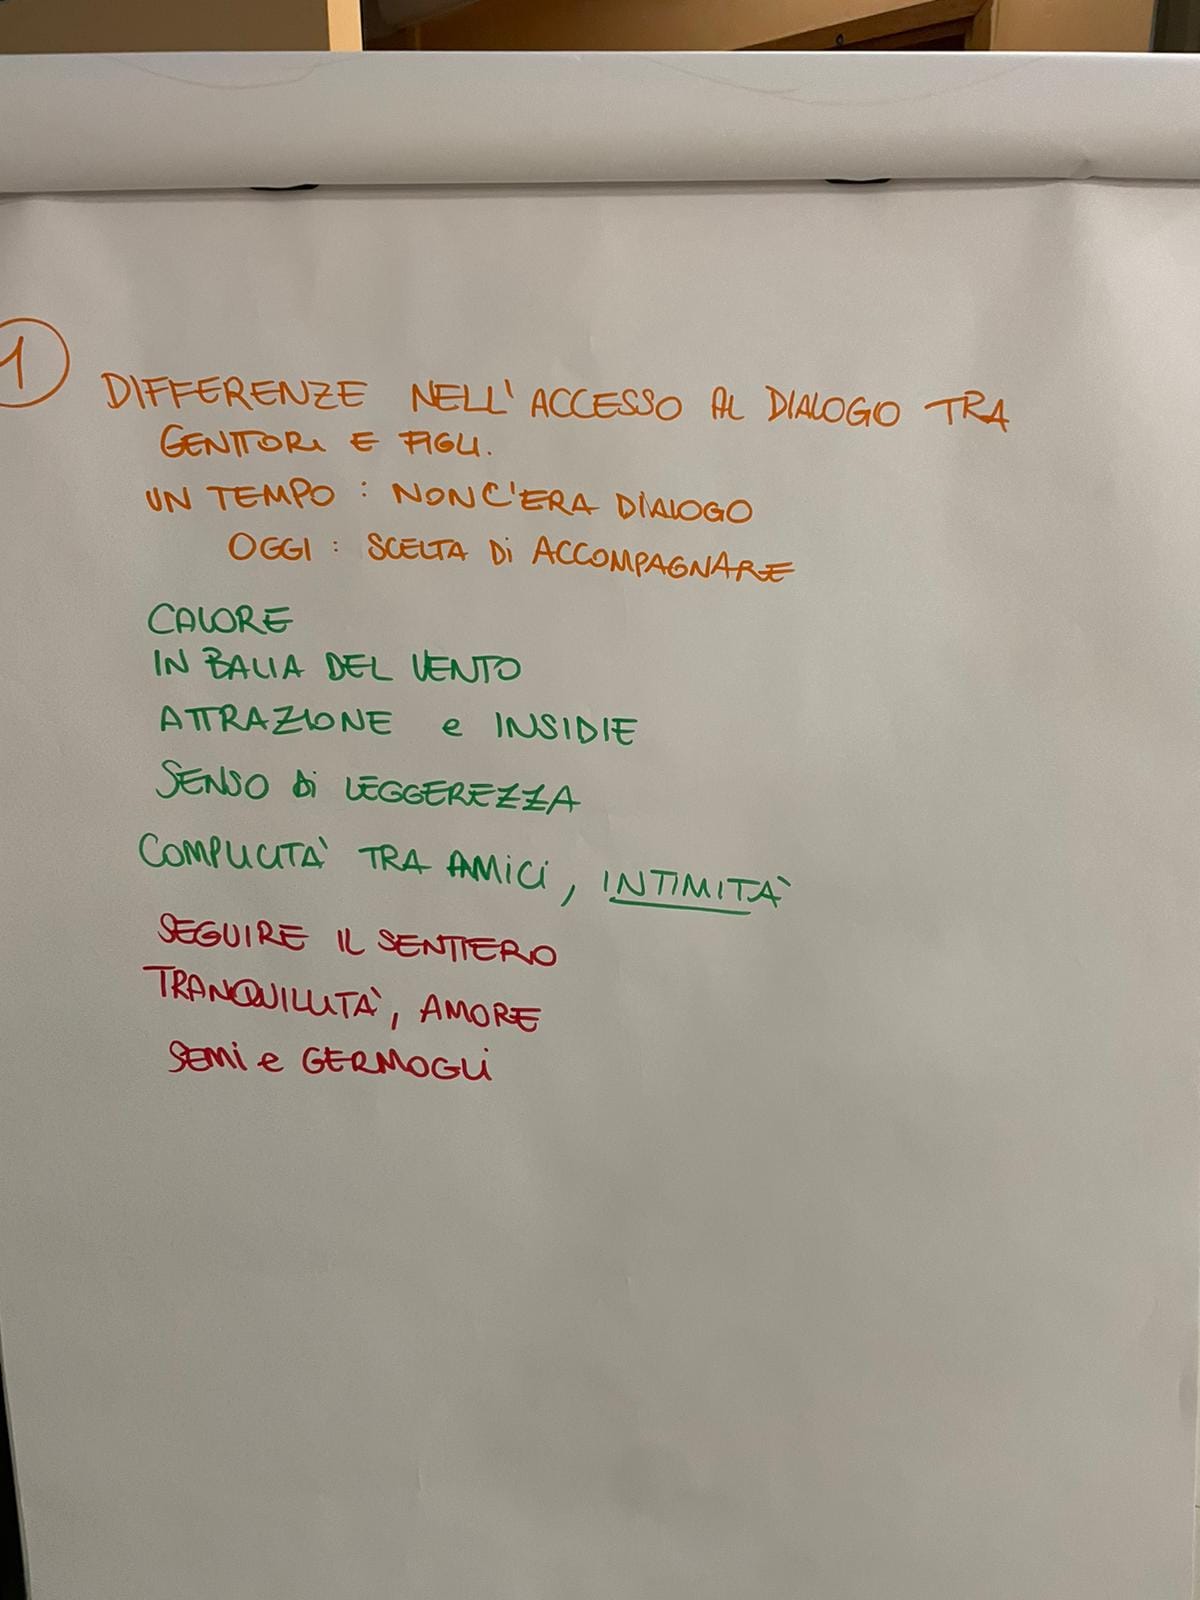 1
DIFFERENZE NELL'ACCESSO AL DIALOGO TRA
GENITORI E FIGLI.
UN TEMPO : NON C'ERA DIALOGO
OGGI : SCELTA Di ACCOMPAGNARE
CALORE
IN BALIA DEL VENTO
ATTRAZIONE e INSIDIE
SENSO Di LEGGEREZZA
COMPLICITÀ TRA AMICI, INTIMITÀ
SEGUIRE IL SENTIERO
TRANQUILLITÀ, AMORE
SEMI e GERMOGLI